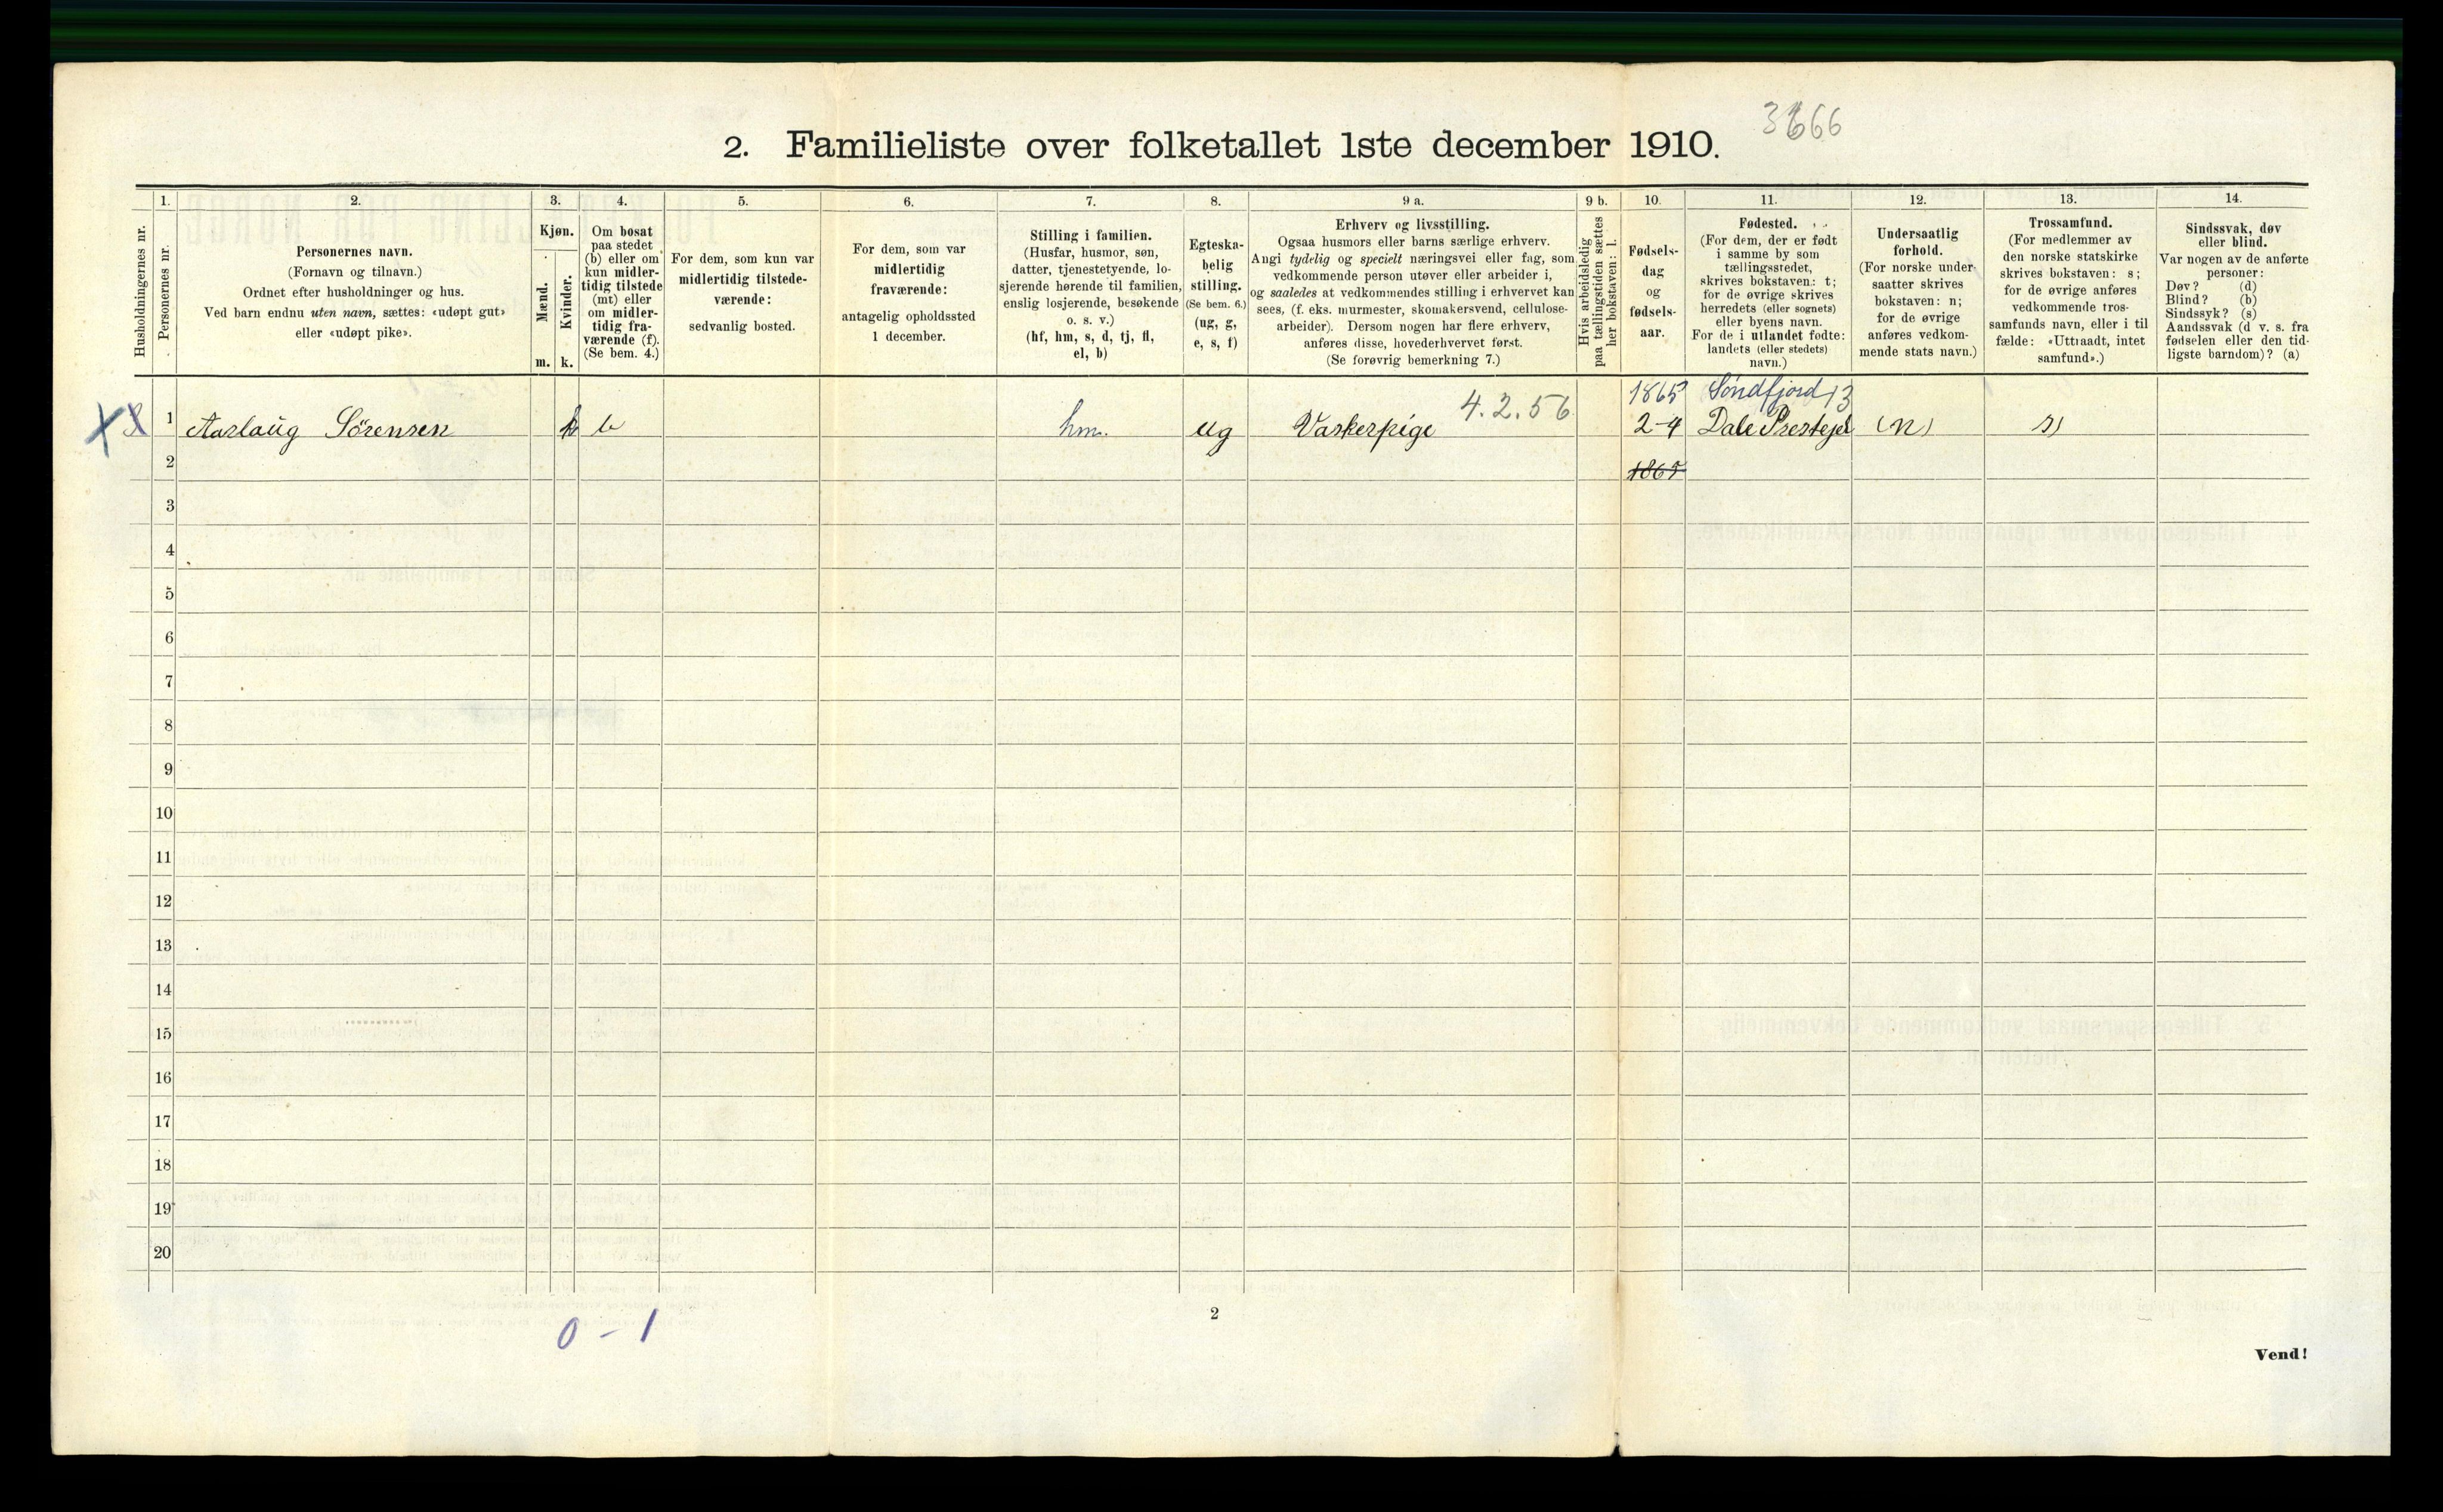 3666
2. Familieliste over folketallet 1ste december 1910.
Husholdningernes nr.
1.
Personernes nr.
2.
Personernes navn.
(Fornavn og tilnavn.)
Ordnet efter husholdninger og hus.
Ved barn endnu uten navn, sættes: «udøpt gut»
eller «udøpt pike».
3.
Kjøn.
Mænd.
m.
Kvinder.
k.
4.
Om bosat
paa stedet
(b) eller om
kun midler-
tidig tilstede
(mt) eller
om midler-
tidig fra-
værende (f).
(Se bem. 4.)
5.
For dem, som kun var
midlertidig tilstede-
værende:
sedvanlig bosted.
6.
For dem, som var
midlertidig
fraværende:
antagelig opholdssted
1 december.
7.
Stilling i familien.
(Husfar, husmor, søn,
datter, tjenestetyende, lo-
sjerende hørende til familien,
enslig losjerende, besøkende
o. s. v.)
(hf, hm, s, d, tj, fl,
el, b)
8.
Egteska-
belig
stilling.
(Se bem. 6.)
(ug, g,
e, s, f)
9 a.
Erhverv og livsstilling.
Ogsaa husmors eller barns særlige erhverv.
Angi tydelig og specielt næringsvei eller fag, som
vedkommende person utøver eller arbeider i,
og saaledes at vedkommendes stilling i erhvervet kan
sees, (f. eks. murmester, skomakersvend, cellulose-
arbeider). Dersom nogen har flere erhverv,
anføres disse, hovederhvervet først.
(Se forøvrig bemerkning 7.)
9 b.
Hvis arbeidsledig
paa tællingstiden sættes
her bokstaven: l.
10.
Fødsels-
dag
og
fødsels-
aar.
11.
Fødested.
(For dem, der er født
i samme by som
tællingsstedet,
skrives bokstaven: t;
for de øvrige skrives
herredets (eller sognets)
eller byens navn.
For de i utlandet fødte:
landets (eller stedets)
navn.)
12.
Undersaatlig
forhold.
(For norske under-
saatter skrives
bokstaven: n;
for de øvrige
anføres vedkom-
mende stats navn.)
13.
Trossamfund.
(For medlemmer av
den norske statskirke
skrives bokstaven: s;
for de øvrige anføres
vedkommende tros-
samfunds navn, eller i til
fælde: «Uttraadt, intet
samfund».)
14.
Sindssvak, døv
eller blind.
Var nogen av de anførte
personer:
Døv? (d)
Blind? (b)
Sindssyk? (s)
Aandssvak (d v. s. fra
fødselen eller den tid-
ligste barndom)? (a)
4.2.56 1865 Søndfjord 13
X 1 Aaslaug Sörensen k b hm. ug Vaskerpige 2-4 Dale Prestejel (n) s)
2 1865
3
4
5
6
7
8
9
10
11
12
13
14
15
16
17
18
19
20
0 - 1
2
Vend!